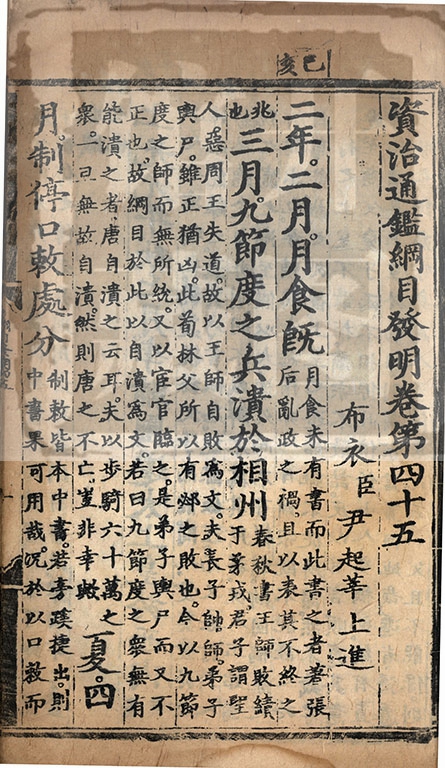 己亥
資治通鑑綱目發明卷第四十五
布衣臣尹起莘上進
二年。二月。月食旣
月食未有書而此書之者著張
后亂政之禍。且以表其不終之
兆
也
三月。九節度之兵潰於相州
春秋書王師敗績
于茅戎。君子謂聖
人惡周王失道。故以王師自敗爲文。夫長子帥師。弟子
輿尸。雖正猶凶。此荀林父所以有邲之敗也。今以九節
度之師而無所統。又以宦官臨之。是弟子輿尸而又不
正也。故綱目於此以自潰爲文。若曰九節度之衆無有
能潰之者。唐自潰之云耳。夫以步騎六十萬之
衆。一旦無故自潰。然則唐之不亡。豈非幸歟
夏。四
月。制停口敕處分
制敕皆本中書。若旁蹊捷出。則
中書果可用哉。况於以口敕而